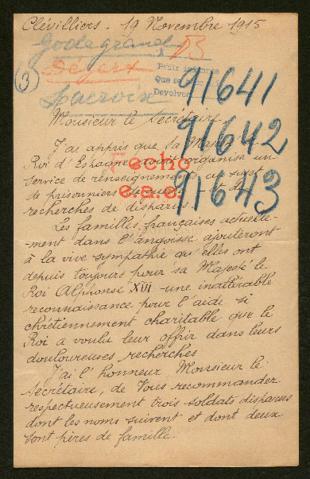 Clévilliers - 19 Novembre 1915
Godegrand
Lacroix
③
91641
91642
91643
Fecho
e.a.c.
Monsieur le Secrétaire
J'ai appris que Sa
Roi d'Espagne avait organisé un
service de renseignements au sujet
de prisonniers
recherches de disparus.
Les familles françaises actuelle-
-ment dans l'angoisse ajouteront
à la vive sympathie qu'elles ont
depuis toujours pour sa Majesté le
Roi Alphonse XIII une inaltérable
reconnaissance pour l'aide si
chrétiennement charitable que le
Roi a voulu leur offrir dans leurs
douloureuses recherches
J'ai l'honneur Monsieur le
Secrétaire, de Vous recommander
respectueusement trois soldats disparus
dont les noms suivent et dont deux
sont pères de famille.